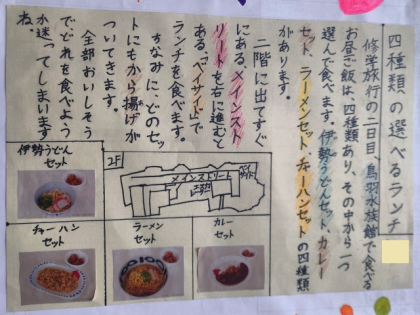 四種類の選べるランチ
修学旅行の二日目、鳥羽水族館で食べる
お昼ご飯は、四種類あり、その中から一つ
選んで食べます。伊勢うどんセット、カレー
セット、ラーメンセット、チャーハンセットの四種類
があります。
二階に出てすぐ
にある、メインスト
リートを右に進むと
ある、「ベイサイド」で
ランチを食べます。
ちなみに、どのセッ
トにもから揚げが
ついてきます。
全部おいしそう
でどれを食べよう
か迷ってしまいます
ね。
伊勢うどん
セット
2F
メインストリート
チャーハン
セット
ラーメン
セット
カレー
セット